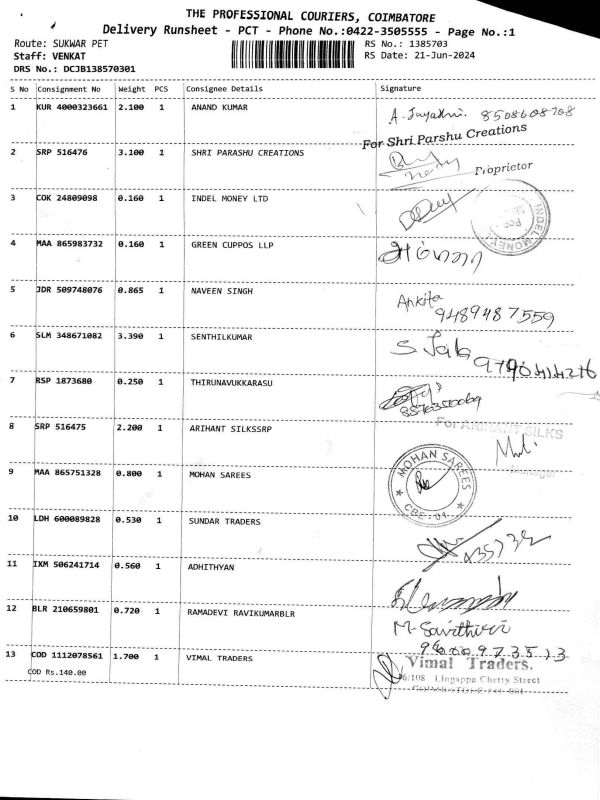 THE PROFESSIONAL COURIERS, COIMBATORE
Delivery Runsheet - PCT - Phone No.:0422-3505555 - Page No.:1
Route: SUKWAR PET
RS No.: 1385703
Staff: VENKAT
RS Date: 21-Jun-2024
DRS No.: DCJB138570301
S No Consignment No Weight PCS Consignee Details Signature
1 KUR 4000323661 2.100 1 ANAND KUMAR
A. Jayathri. 8508608708
For Shri Parshu Creations
2 SRP 516476 3.100 1 SHRI PARASHU CREATIONS
Proprietor
3 COK 24809098 0.160 1 INDEL MONEY LTD
INDEL MONEY
4 MAA 865983732 0.160 1 GREEN CUPPOS LLP
5 JDR 509748076 0.865 1 NAVEEN SINGH
Ankita
9489487559
6 SLM 348671082 3.390 1 SENTHILKUMAR
7 RSP 1873680 0.250 1 THIRUNAVUKKARASU
8 SRP 516475 2.200 1 ARIHANT SILKSSRP
For ARIHANT SILKS
Manager
9 MAA 865751328 0.800 1 MOHAN SAREES
MOHAN SAREES
CBE - 01
10 LDH 600089828 0.530 1 SUNDAR TRADERS
11 IXM 506241714 0.560 1 ADHITHYAN
12 BLR 210659801 0.720 1 RAMADEVI RAVIKUMARBLR
M. Savithiri
13 COD 1112078561 1.700 1 VIMAL TRADERS
COD Rs.140.00
Vimal Traders.
6/108 Lingappa Chetty Street